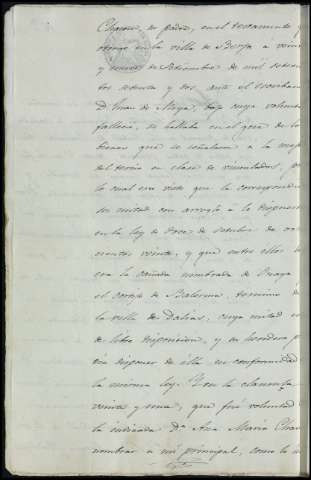 su padre, en el testamento q
otorgó en la villa de Berja á veinte
y nueve de Setiembre de mil setecien
tos setenta y dos, ante el Escribano
Dn Juan de Moya, bajo cuya voluntad
falleció, se hallaba en el goce de los
bienes que se señalaron á la mejo
del tercio en clase de vinculados, po
lo cual era visto que la correspondia
su mitad con arreglo á lo dispuesto
en la ley de Once de Octubre de ocho
cientos veinte, y que entre ellos
era la cañada nombrada de
el cortijo de Balerma, termino de
la villa de Dalias, cuya mitad es
de libre disposicion, y su heredera po
dia disponer de ella en conformidad
la misma ley. Y en la clausula
veinte y una, que fué voluntad
la indicada Da Ana Maria
nombrar á mi principal, como lo